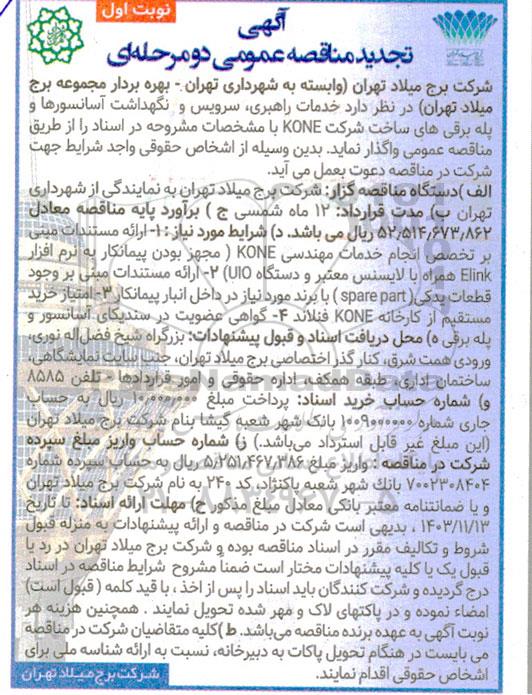 نوبت اول
آگهی
تجدید مناقصه عمومی دو مرحله‌ای
شرکت برج میلاد تهران (وابسته به شهرداری تهران - بهره بردار مجموعه برج
میلاد تهران) در نظر دارد خدمات راهبری، سرویس و نگهداشت آسانسورها و
پله برقی های ساخت شرکت KONE با مشخصات مشروحه در اسناد را از طریق
مناقصه عمومی واگذار نماید. بدین وسیله از اشخاص حقوقی واجد شرایط جهت
شرکت در مناقصه دعوت بعمل می آید.
الف )دستگاه مناقصه گزار: شرکت برج میلاد تهران به نمایندگی از شهرداری
تهران ب) مدت قرارداد: ۱۲ ماه شمسی ج ) برآورد پایه مناقصه معادل
۵۲,۵۱۴,۶۷۳,۸۶۲ ریال می باشد. د) شرایط مورد نیاز : ۱- ارائه مستندات مبنی
بر تخصص انجام خدمات مهندسی KONE ( مجهز بودن پیمانکار به نرم افزار
Elink همراه با لایسنس معتبر و دستگاه UIO) ۲- ارائه مستندات مبنی بر وجود
قطعات یدکی( spare part ) با برند مورد نیاز در داخل انبار پیمانکار ۳- امتیاز خرید
مستقیم از کارخانه KONE فنلاند ۴- گواهی عضویت در سندیکای آسانسور و
پله برقی ه) محل دریافت اسناد و قبول پیشنهادات: بزرگراه شیخ فضل‌اله نوری،
ورودی همت شرق، کنار گذر اختصاصی برج میلاد تهران، جنب سایت نمایشگاهی،
ساختمان اداری، طبقه همکف، اداره حقوقی و امور قراردادها - تلفن ۸۵۸۵
و) شماره حساب خرید اسناد: پرداخت مبلغ ۱۰,۰۰۰,۰۰۰ ریال به حساب
جاری شماره/ ۱۰۰۹۰۰۰۰۰۰ بانک شهر شعبه کیشا بنام شرکت برج میلاد تهران
(این مبلغ غیر قابل استرداد می‌باشد.) ز) شماره حساب واریز مبلغ سپرده
شرکت در مناقصه : واریز مبلغ ۵/۲۵۱,۴۶۷,۳۸۶ ریال به حساب سپرده شماره
۷۰۰۲۳۰۸۴۰۴ بانک شهر شعبه پاکنژاد، کد ۲۴۰ به نام شرکت برج میلاد تهران
و یا ضمانتنامه معتبر بانکی معادل مبلغ مذکور ح) مهلت ارائه اسناد: تا تاریخ
۱۴۰۳/۱۱/۱۳ ، بدیهی است شرکت در مناقصه و ارائه پیشنهادات به منزله قبول
شروط و تکالیف مقرر در اسناد مناقصه بوده و شرکت برج میلاد تهران در رد یا
قبول یک یا کلیه پیشنهادات مختار است ضمنا مشروح شرایط مناقصه در اسناد
درج گردیده و شرکت کنندگان باید اسناد را پس از اخذ ، با قید کلمه ( قبول است)
امضاء نموده و در پاکتهای لاک و مهر شده تحویل نمایند . همچنین هزینه هر
نوبت آگهی به عهده برنده مناقصه می‌باشد. ط )کلیه متقاضیان شرکت در مناقصه
می بایست در هنگام تحویل پاکات به دبیرخانه، نسبت به ارائه شناسه ملی برای
اشخاص حقوقی اقدام نمایند.
شرکت برج میلاد تهران